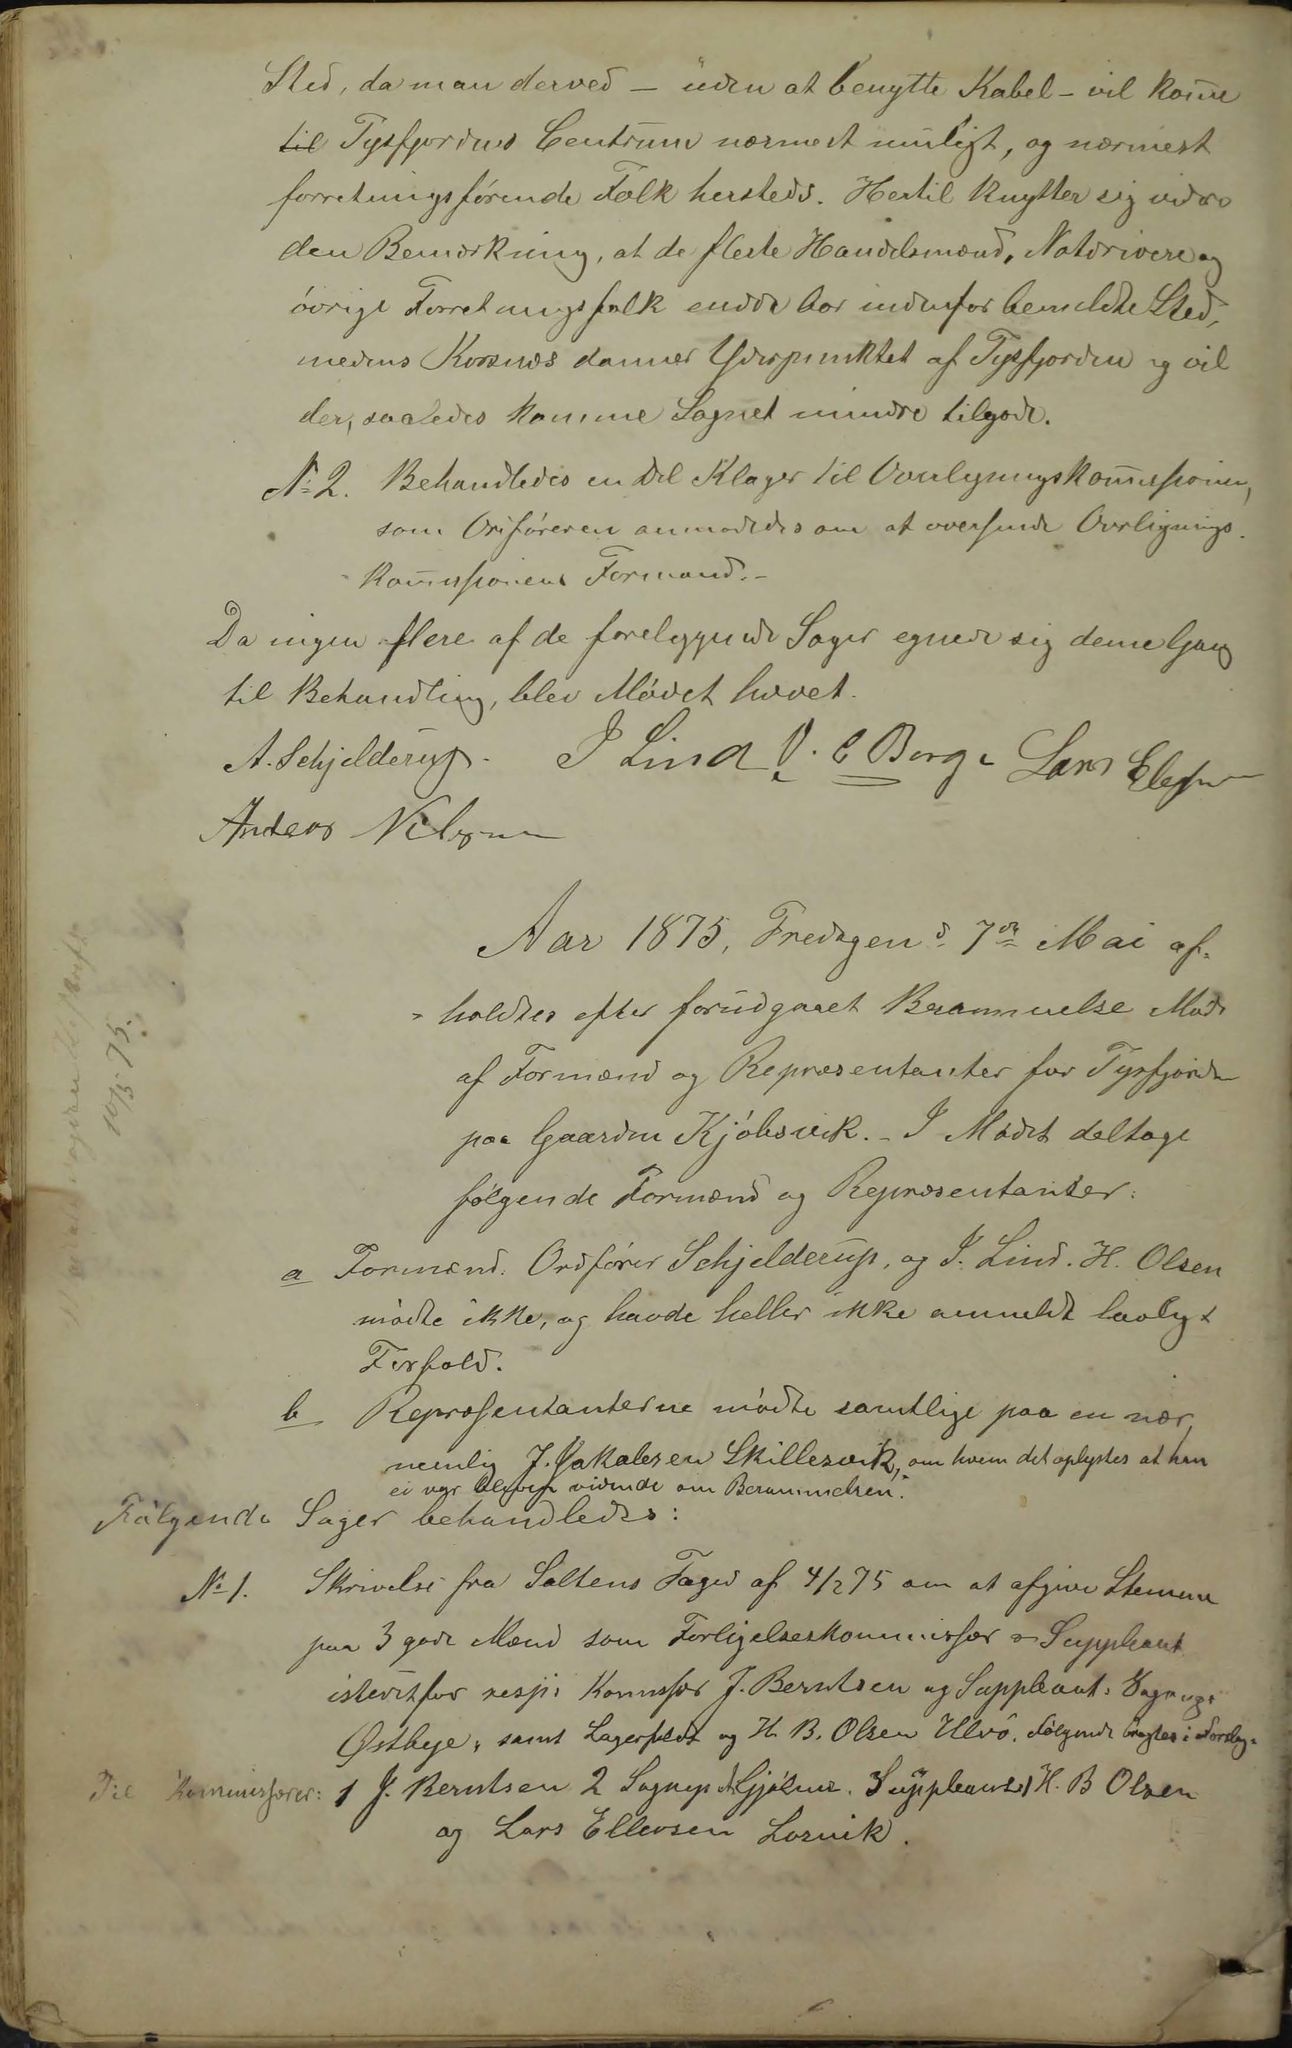 Sted, da man derved – uden at benytte Kabel – vil komme
til Tysfjordens Centrum nærmest muligt, og nærmest
forretningsførende Folk hersteds. Hertil knytter sig videre
den Bemærkning, at de fleste Handelsmænd, Notdrivere og
øvrige Forretningsfolk endde bor indenfor bemeldte Sted,
medens Korsnæs danner Yderpunktet af Tysfjorden og vil
der, saaledes komme Sognet mindre tilgode.
No 2. Behandledes en Del Klager til Overligningskommissionen,
som Ordføreren anmodedes om at oversende Overlignings-
kommissionens Formand.-
Da ingen flere af de foreliggende Sager egnede sig denne Gang
til Behandling, blev Mødet hævet.
A. Schjelderup. J Lind C Borge Lars Elefsen
Anders Nilsen
Aar 1875, Fredagen d 7de Mai af-
holdtes efter forudgaaet Berammelse Møde
af Formænd og Repræsentanter for Tysfjorden
paa Gaarden Kjøbsvik. – I Mødet deltoge
følgende Formænd og Repræsentanter:
a Formænd. Ordfører Schjelderup, og J. Lind. H. Olsen
mødte ikke, og havde heller ikke anmeldt lovligt
Forfald.
b Repræsentanterne mødte samtlige paa en nær,
nemlig J. Jakobsen Skillesvik, om hvem det oplystes at han
ei var bleven vidende om Berammelsen.
Følgende Sager behandledes:
No 1. Skrivelse fra Saltens Foged af 4/2 75 om at afgive Stemme
paa 3 gode Mænd som Forligelseskommissær & Suppleant
istedetfor resp: Komissær J. Berntsen og Suppleant:
Østbye, samt Lagerfeldt og H. B. Olsen Ulvø. Følgende bragtes i Forslag:
Til Kommissærer: 1 J. Berntsen 2 Sognep Gjølme. Suppleanter H. B Olsen
og Lars Ellevsen Losvik.
10/5 75.